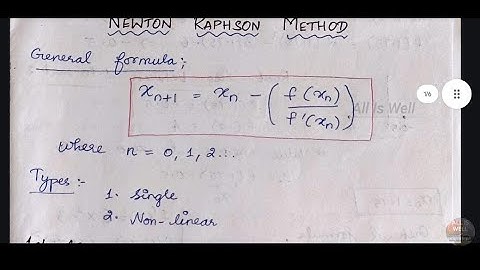 NEWTON RAPHSON METHOD
General formula;
xₙ₊₁ = xₙ - ( f(xₙ) / f'(xₙ) )
All Is Well
1/6
where n = 0, 1, 2...
Types:-
1. Single
2. Non-linear
ALL IS
WELL